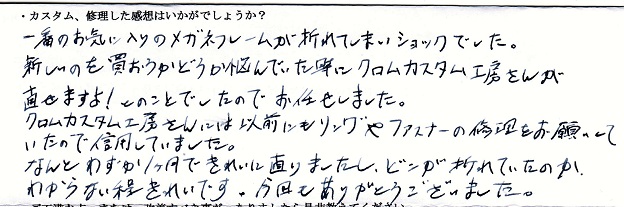 ・カスタム、修理した感想はいかがでしょうか？
一番のお気に入りのメガネフレームが折れてしまいショックでした。
新しいのを買おうかどうか悩んでいた時にクロムカスタム工房さんが
直せますよ！とのことでしたのでお任せしました。
クロムカスタム工房さんには以前にもリングやファスナーの修理をお願いして
いたので信用していました。
なんとわずか1ヶ月できれいに直りましたし、どこが折れていたのか
わからない程きれいです。今回もありがとうございました。